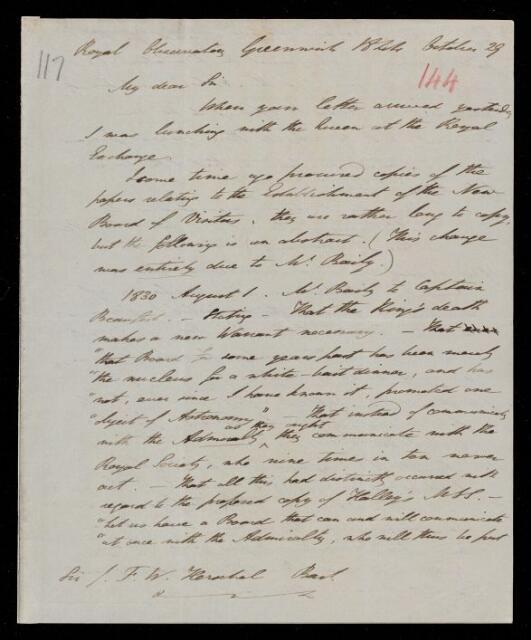 117
Royal Observatory Greenwich 1844 October 29
144
My dear Sir
When your letter arrived yesterday
I was lunching with the Queen at the Royal
Exchange.
I some time ago procured copies of the
papers relating to the Establishment of the New
Board of Visitors. they are rather long to copy,
but the following is an abstract. (This change
was entirely due to Mr. Baily.)
1830 August 1. Mr. Baily to Captain
Beaufort. — Stating — That the King's death
makes a new Warrant necessary. — That
"that Board for some years past has been merely
"the nucleus for a white-bait dinner, and has
"not, ever since I have known it, promoted one
"object of Astronomy" — That instead of communicating
as they might
with the Admiralty, they communicate with the
Royal Society, who nine times in ten never
act. — That all this had distinctly occurred with
regard to the proposed copy of Halley's MSS. —
"Let us have a Board that can and will communicate
"at once with the Admiralty, who will thus be put
Sir J. F. W. Herschel Bart